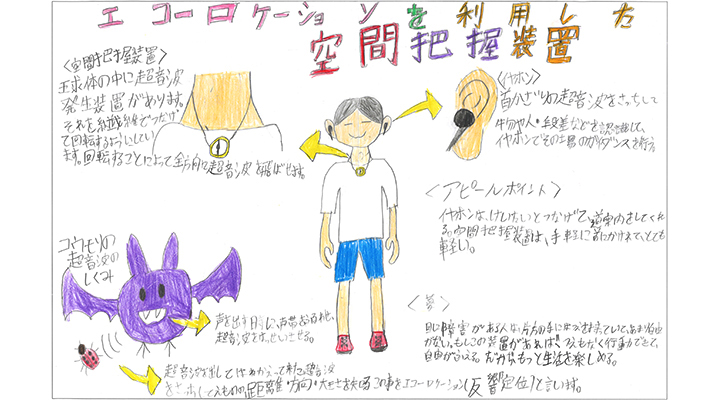 エコーロケーションを利用した
空間把握装置
<空間把握装置>
球体の中に超音波
発生装置があります。
て回転するようにしてい
ます。回転することによって全方向に超音波を飛ばせます。
<イヤホン>
首かざりの超音波をさっちして
物や人・段差などを認識して、
イヤホンでその場のガイダンスを行う。
<アピールポイント>
イヤホンは、けいたいとつなげて、道案内をしてくれ
る。空間把握装置は、手軽に首にかけれて、とても
軽い。
コウモリの
超音波の
しくみ
声を出す前に、声帯を
超音波をはっせいさせる。
超音波を出してはねかえって来た超音波
をさっちしてえものの距離・方向・大きさを この事をエコーロケーション(反響定位)と言います。
<夢>
目に障害がある人は、片方の手に をもっていて、あまり自由
がない。もしこの装置があれば つえもなく行動できて、
自由がふえる。だからもっと生活を楽しめる。